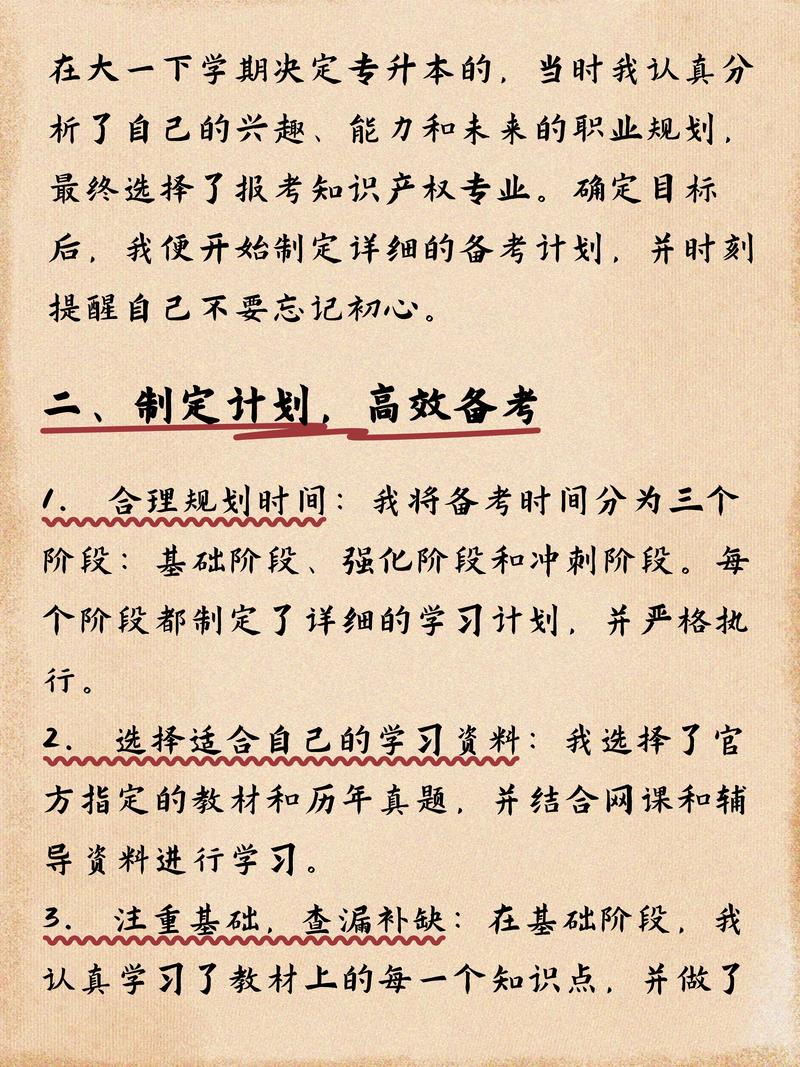 在大一下学期决定专升本的，当时我认真分
析了自己的兴趣、能力和未来的职业规划，
最终选择了报考知识产权专业。确定目标
后，我便开始制定详细的备考计划，并时刻
提醒自己不要忘记初心。
二、制定计划，高效备考
1. 合理规划时间：我将备考时间分为三个
阶段：基础阶段、强化阶段和冲刺阶段。每
个阶段都制定了详细的学习计划，并严格执
行。
2. 选择适合自己的学习资料：我选择了官
方指定的教材和历年真题，并结合网课和辅
导资料进行学习。
3. 注重基础，查漏补缺：在基础阶段，我
认真学习了教材上的每一个知识点，并做了